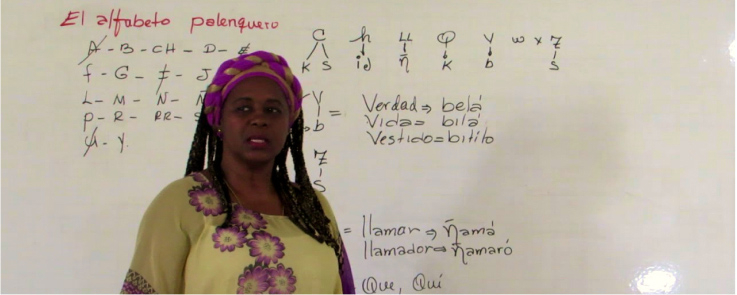 El alfabeto palenquero
A - B - CH - D - E
f - G - I - J
L - M - N - Ñ
P - R - RR - S
U - Y.
C h LL Q V w x Z
K S id ñ k b S
V = Verdad ⇒ belá
b Vida = bilá
Vestido = bitilo
Z
S
= llamar ⇒ Ñamá
llamador ⇒ Ñamaró
Que, Qui